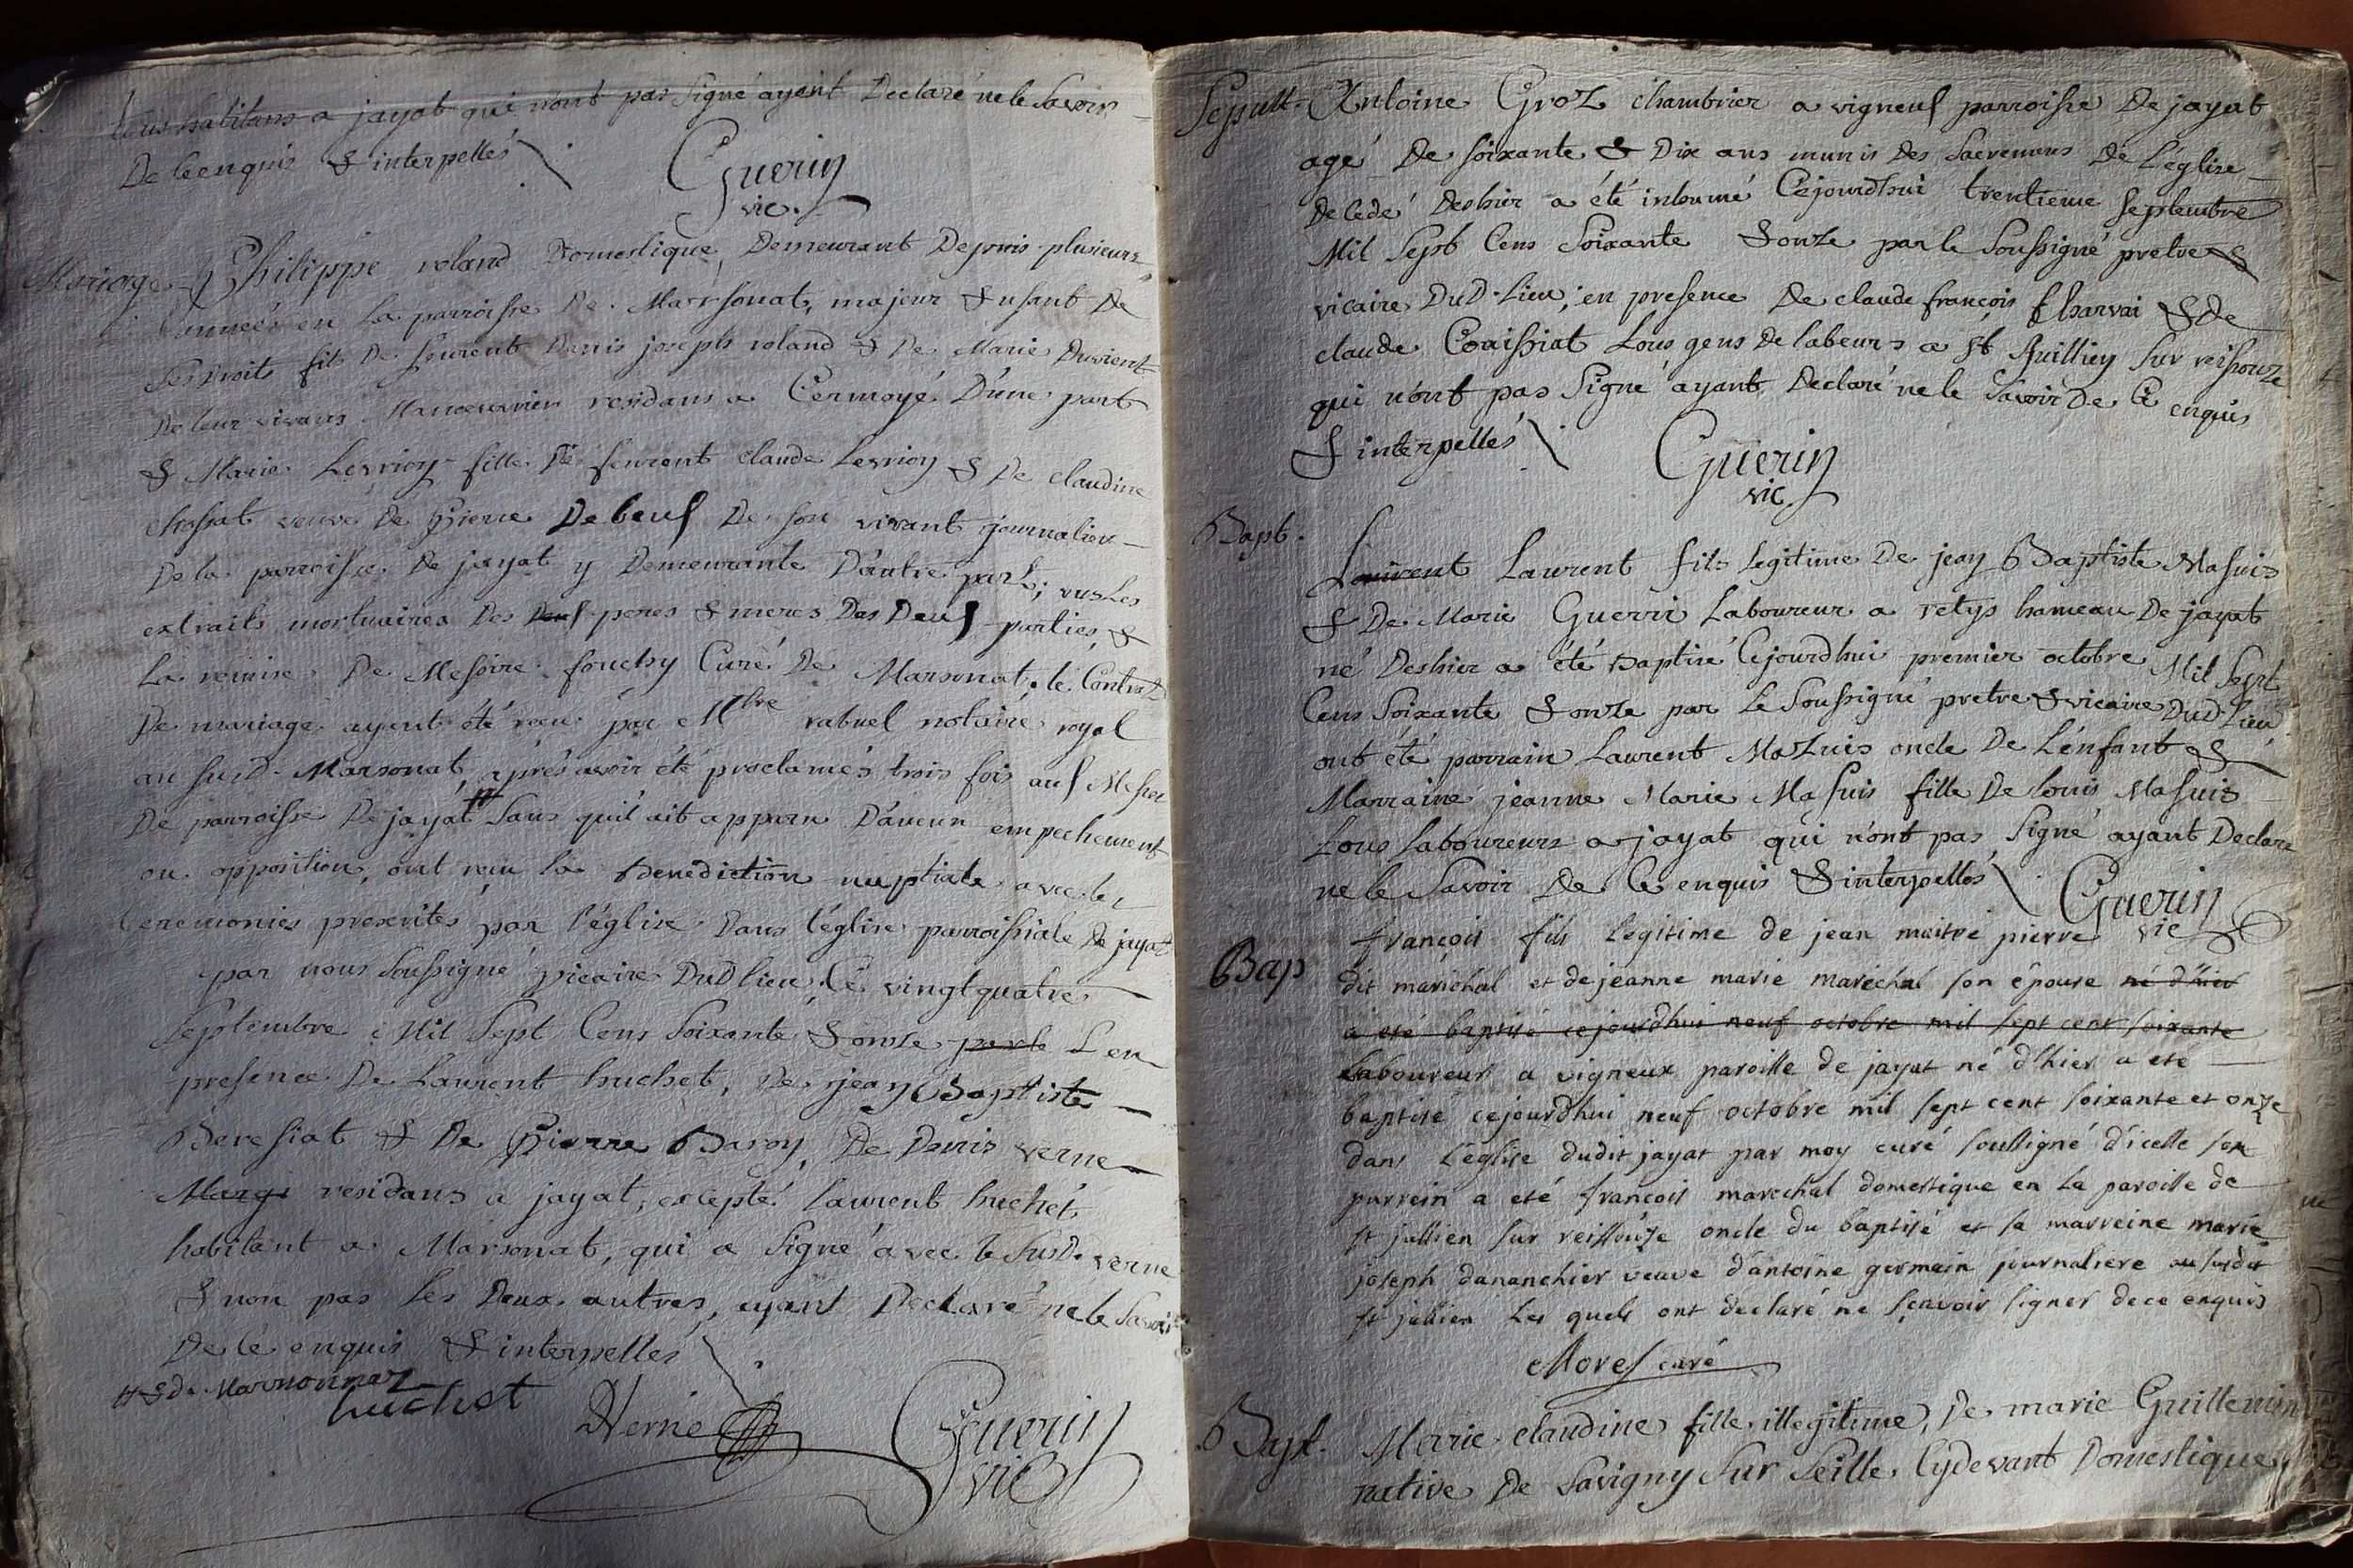 tous habitans a jayat qui n'ont pas signé ayant Declaré ne le savoir
De ce enquis & interpellés
Guerin
vic.
Mariage
Philippe roland Domestique, Demeurant Depuis plusieurs
années en la parroisse De Marsonat, majeur & usant De
ses Droits fils De feurent Denis joseph roland & De Marie Duvient
De leur vivans Manoeuvrier residans a Cormoyé D'une part
& Marie Levrioy fille De feurent claude Levrioy & De claudine
chassat veuve De Pierre Debeuf De son vivant journalier
De la parroisse De jayat y Demeurante D'autre part; vus Les
extraits mortuaires Des Deuf peres & meres Des Deuf parties, &
La remise De Messire fouchy Curé De Marsonat, le Contrat
De mariage ayant été recu par Mtre rabuel notaire royal
au susd. Marsonat, aprés avoir été proclamés trois fois auf Messes
De parroisse De jayat # sans quil ait apparu D'aucun empechement
ou opposition, ont reçu la Benediction nuptiale avec les
Ceremonies prescrites par l'église Dans l'église parroissiale De jayat
par nous soussigné vicaire DuD lieu, Ce vingt quatre
septembre Mil Sept Cens soixante & onze par le & en
presence De Laurent huchet, De jean Baptiste
Beressiat & De Pierre Baroy, De Denis verne
Margi residans a jayat, excepté laurent huchet
habitant a Marsonat, qui a signé avec le susd. verne
& non pas les Deux autres, ayant Declaré ne le savoir
De ce enquis & interpellés
# & de Marnonnaz
huchet
DVerne
Guerin
vic
Sepult.
Antoine Groz chambrier a vigneuf parroisse De jayat
agé De soixante & Dix ans munis Des Sacremens De L'église
Decedé Deshier a été inhumé Cejourdhui trentieme septembre
Mil Sept Cens Soixante & onze par le soussigné pretre &
vicaire DuD. Lieu, en presence De claude françois Charvai & de
claude Coaissiat tous gens De labeurs a St jullien sur reissouze
qui n'ont pas signé ayant Declaré ne le savoir De Ce enquis
& interpellés
Guerin
vic.
Bapt.
Lauvent Laurent fils legitime De jean Baptiste Masuis
& De Marie Guerri Laboureur a retys hameau De jayat
né Deshier a été Baptisé Cejourdhui premier octobre Mil Sept
Cens Soixante & onze par le soussigné pretre & vicaire DuD. Lieu
ont été parrain Laurent Mazuis oncle De L'enfant &
Marraine jeanne Marie Masuis fille De louis Masuis
tous laboureurs a jayat qui n'ont pas signé ayant Declaré
ne le savoir De Ce enquis & interpellés
Guerin
vic
Bap
françois fils legitime de jean maitre pierre
dit maréchal et de jeanne marie marechal son épouse né d'hier
a été baptisé cejourdhui neuf octobre mil sept cent soixante
laboureurs a vigneux paroisse de jayat né d'hier a eté
baptisé cejourdhui neuf octobre mil sept cent soixante et onze
dans l'église dudit jayat par moy curé soussigné d'icelle son
parrein a eté françois marechal domestique en la paroisse de
st jullien sur reissouze oncle du baptisé et sa marreine marie
joseph dananchier veuve d'antoine germain journaliere au susdit
st jullien les quels ont declaré ne sçavoir signer de ce enquis
Morel curé
Bapt.
Marie claudine fille illegitime, De marie Guillemin
native De Savigny Sur Seille, Cydevant Domestique